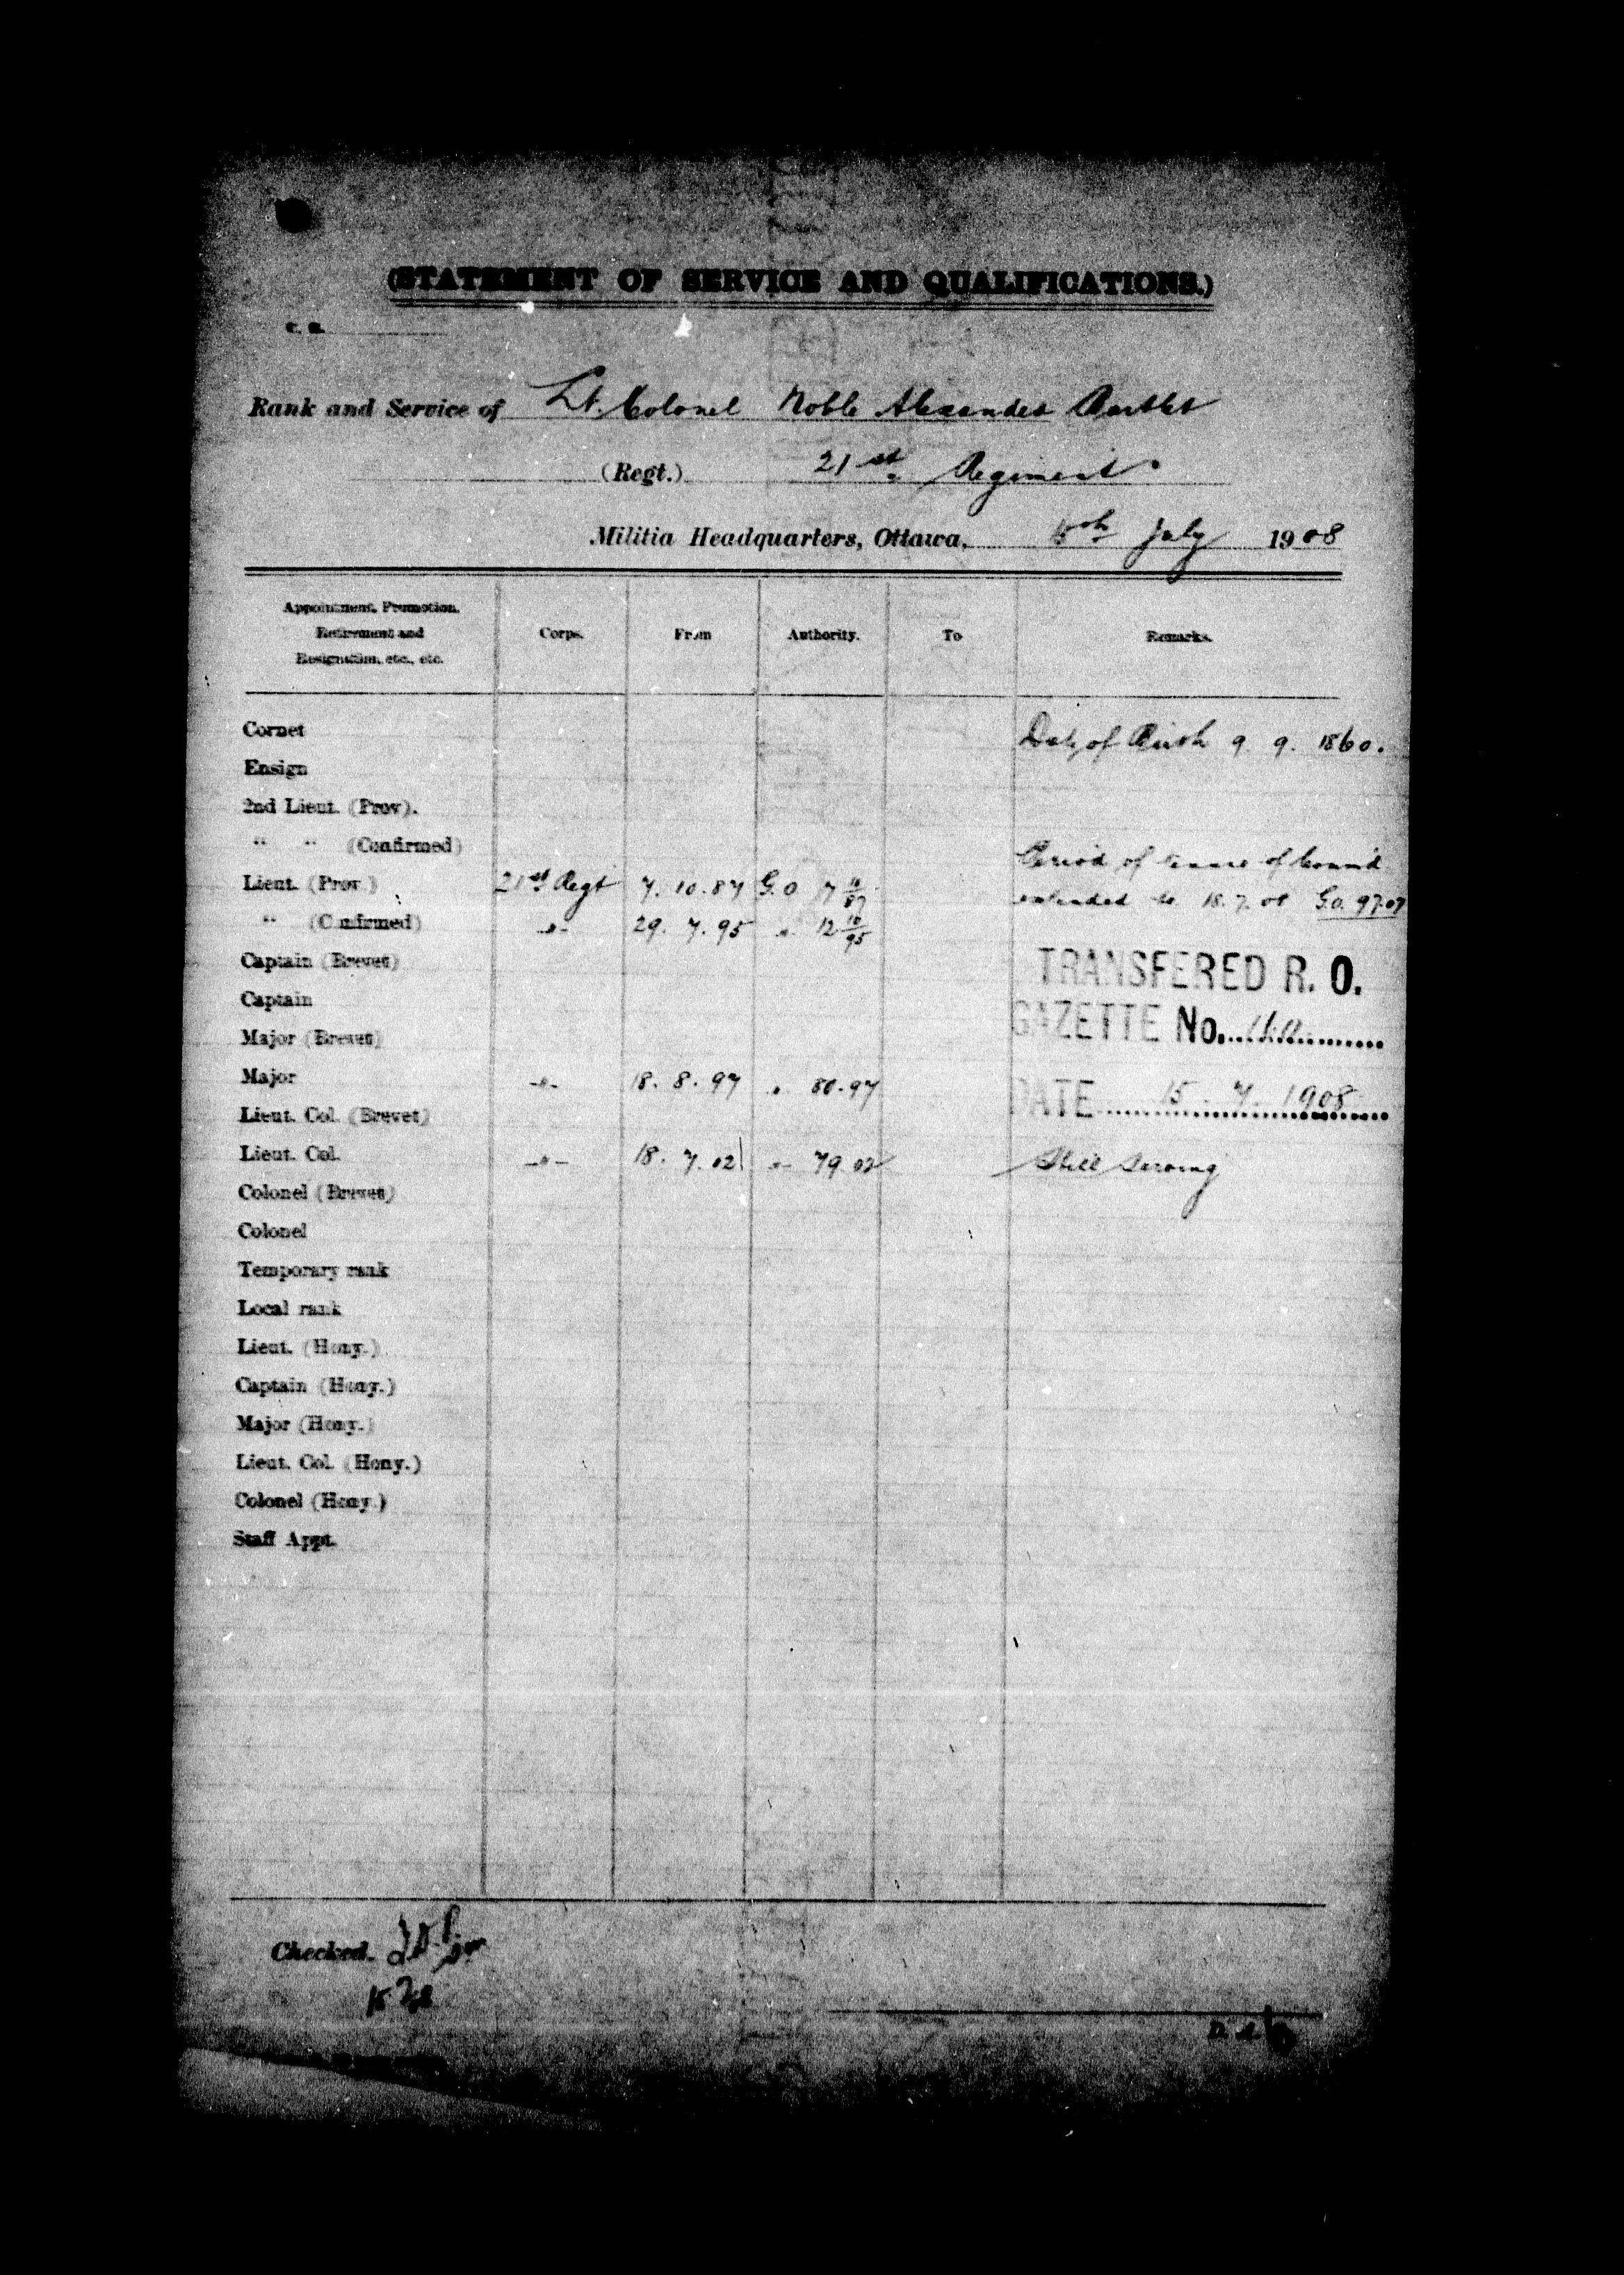 (STATEMENT OF SERVICE AND QUALIFICATIONS.)
Rank and Service of Lt. Colonel Noble Alexander Bartlet
(Regt.) 21st Regiment
Militia Headquarters, Ottawa, 15th July 1908
Appointment, Promotion, Retirement and Resignation, etc., etc. Corps. From Authority. To Remarks.
Cornet Date of Birth 9. 9. 1860.
Ensign
2nd Lieut. (Prov).
" " (Confirmed)
Period of tenure of Comm'd
Lieut. (Prov.) 21st Regt 7. 10. 87 G.O 7 10/87
extended to 18. 7. 08 G.O. 97.07
" (Confirmed) -"- 29. 7. 95 " 12 10/95
Captain (Brevet) TRANSFERED R. O.
Captain
GAZETTE No.
Major (Brevet)
Major -"- 18. 8. 97 " 80.97
DATE 15 7 1908
Lieut. Col. (Brevet)
Lieut. Col. -"- 18. 7. 02 " 79.02 Still serving
Colonel (Brevet)
Colonel
Temporary rank
Local rank
Lieut. (Hony.)
Captain (Hony.)
Major (Hony.)
Lieut. Col. (Hony.)
Colonel (Hony.)
Staff Appt.
Checked.